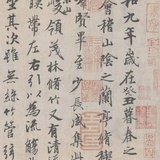 和九年歲在癸丑暮春之
會稽山陰之蘭亭脩禊
賢畢至少長咸集此
領茂林脩竹又有清
帶左右引以為流觴
坐其次雖無絲竹管弦